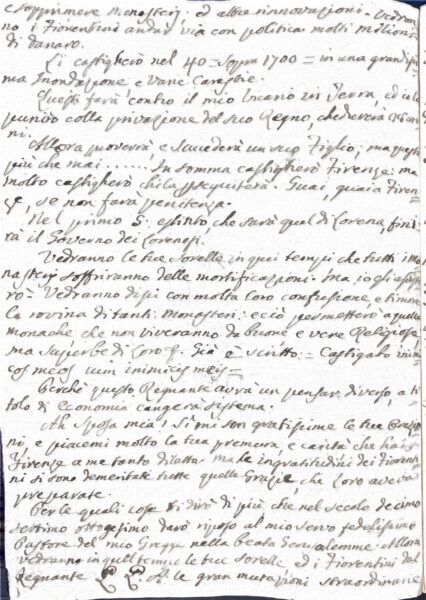 e sopprimere Monasterj, ed altre innovazioni. Vedran
no i Fiorentini andar via con politica molti milioni
di danaro.
Li castigherò nel 40 = sopra 1700 = in una grandissi
ma Inondazione e varie Carestie.
Questi farà contro il mio Vicario in Terra, ed io lo
punirò colla privazione del suo Regno, che
ni.
Allora moverà, e succederà un suo Figlio, ma questi
più che mai ...... In somma castigherò Firenze: ma
molto castigherò chi la perseguiterà. Guai, guai a Firen
ze, se non farà penitenza.
Nel primo S: estinto, che sarà qual di Lorena, fini
rà il Governo dei Lorenesi.
Vedranno le tue sorelle in quei tempi che tutti i Mo
nasterj soffriranno delle mortificazioni. Ma io gli
rò. Vedranno di più con molta loro confusione, e timore
la rovina di tanti Monasteri: e ciò permetterò a quelle
monache che non viveranno da buone e vere Religiose,
ma superbe di loro Già è scritto = Castigabo inimi
cos meos cum inimicis meis =
Perchè questo Regnante avrà un pensar diverso, a ti
tolo di Economia cangerà sistema.
Ah Sposa mia! Sì mi son gratissime le tue Orazio
ni, e piacemi molto la tua premura, e carità che hai
Firenze a me tanto diletta: ma le ingratitudini dei Fiorenti
ni si sono demeritate tutte quelle Grazie, che loro aveva
preparate.
Per le quali cose ti dirò di più, che nel secolo decimo
settimo ottogesimo darò riposo al mio servo fedelissimo
Pastore del mio Gregge nella beata Gerusalemme. Allora
vedranno in quel tempo le tue sorelle ed i Fiorentini dal
Regnante P. L. A. le gran mutazioni straordinarie